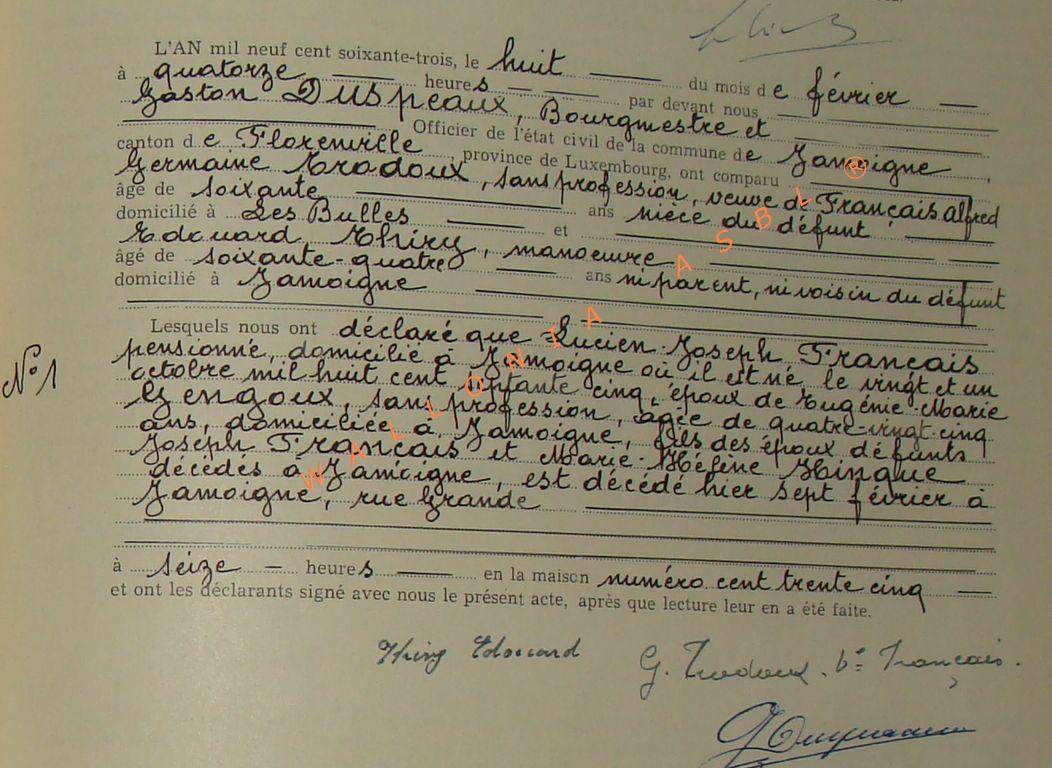 L'AN mil neuf cent soixante-trois, le huit du mois de février
à quatorze heures par devant nous
Gaston Duspeaux, Bourgmestre et
Officier de l'état civil de la commune de Jamoigne
canton de Florenville, province de Luxembourg, ont comparu
Germaine Trodoux, sans profession, veuve de Français Alfred
âgé de soixante ans nièce du défunt
domicilié à Les Bulles et
Edouard Thiry, manoeuvre
âgé de soixante-quatre ans ni parent, ni voisin du défunt
domicilié à Jamoigne
Lesquels nous ont déclaré que Lucien-Joseph Français
pensionné, domicilié à Jamoigne où il est né le vingt et un
octobre mil huit cent septante cinq, époux de Eugénie-Marie
Gengoux, sans profession, âgée de quatre-vingt-cinq
ans, domiciliée à Jamoigne, fils des époux défunts
Joseph Français et Marie-Hélène Hinque
décédés à Jamoigne, est décédé hier sept février à
Jamoigne, rue Grande
N° 1
à seize heures en la maison numéro cent trente cinq
et ont les déclarants signé avec nous le présent acte, après que lecture leur en a été faite.
Thiry Edouard
G. Trodoux. Ve Français.
WALLONIA ASBL ®